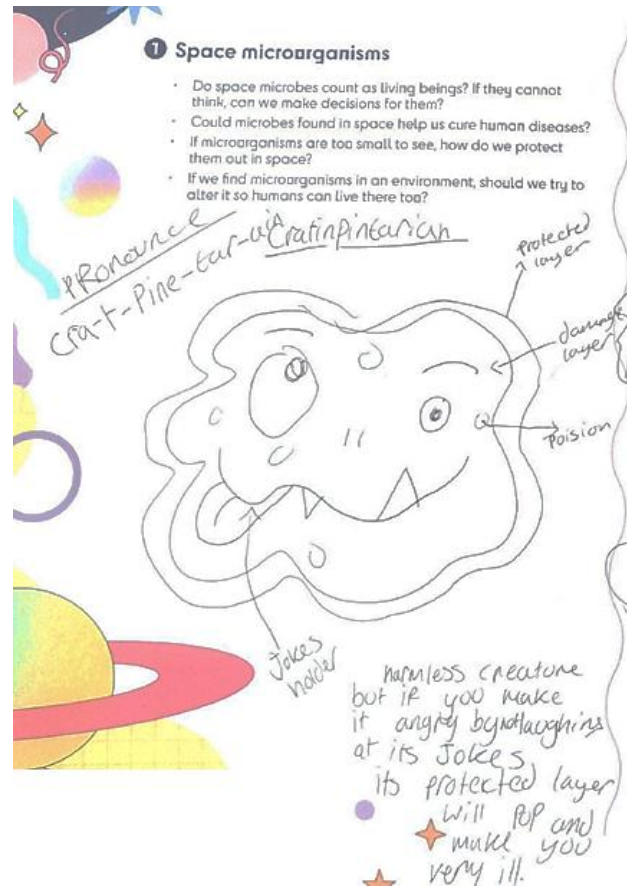 1 Space microorganisms
· Do space microbes count as living beings? If they cannot
think, can we make decisions for them?
· Could microbes found in space help us cure human diseases?
· If microorganisms are too small to see, how do we protect
them out in space?
· If we find microorganisms in an environment, should we try to
alter it so humans can live there too?
PRonounce
Cra-t-Pine-tar-uin
Cratinpintarian
protected
layer
damage
layer
Poision
Jokes
holder
harmless creature
but if you make
it angry by notlaughing
at its Jokes
its protected layer
will POP and
make you
very ill.